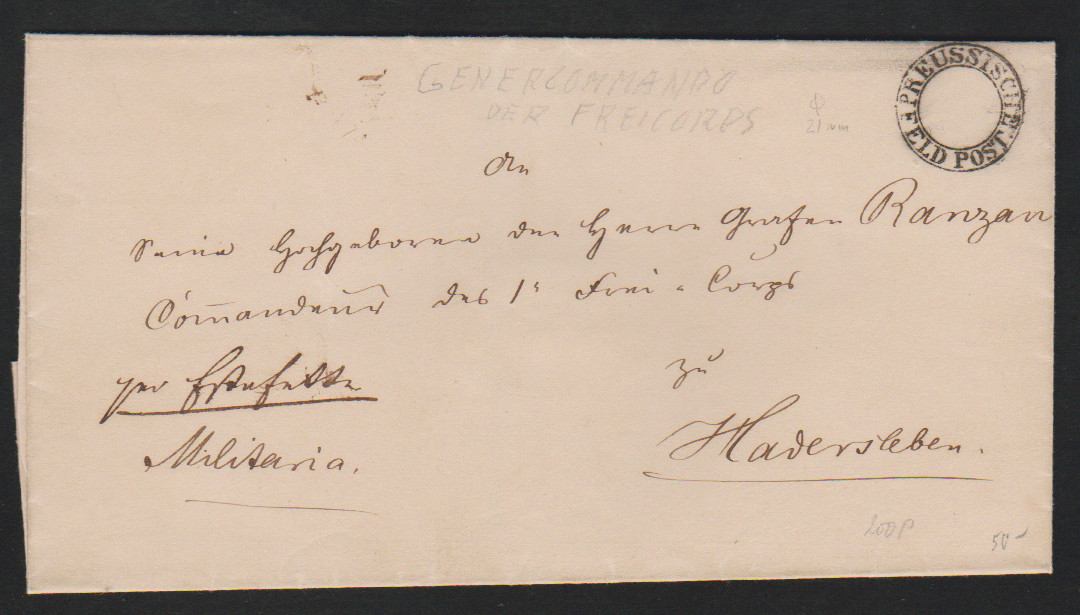 GENERCOMMANDO
DER FREICORPS
21 mm
PREUSSISCHE
FELD POST.
An
Seine Hochgeboren den Herrn Grafen Ranzau
Commandeur des 1n Frei-Corps
per Estafette
zu
Militaria.
Hadersleben.
200P
50-